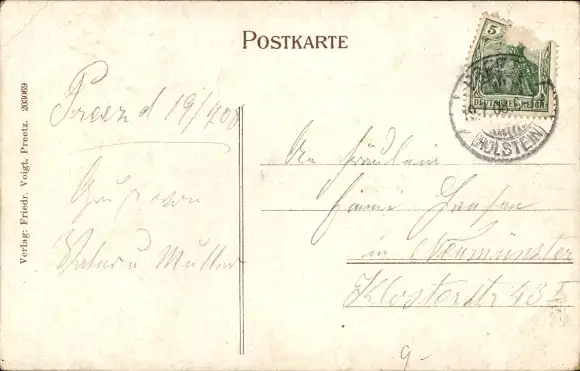 POSTKARTE
Verlag: Friedr. Voigt, Preetz. 203069
5
DEUTSCHES REICH
(HOLSTEIN)
Preez d 19/7 08
Gruß von
Vater u Mutter
An Fräulein
Hansen
in Neumünster
Klosterstr 43 I
9.